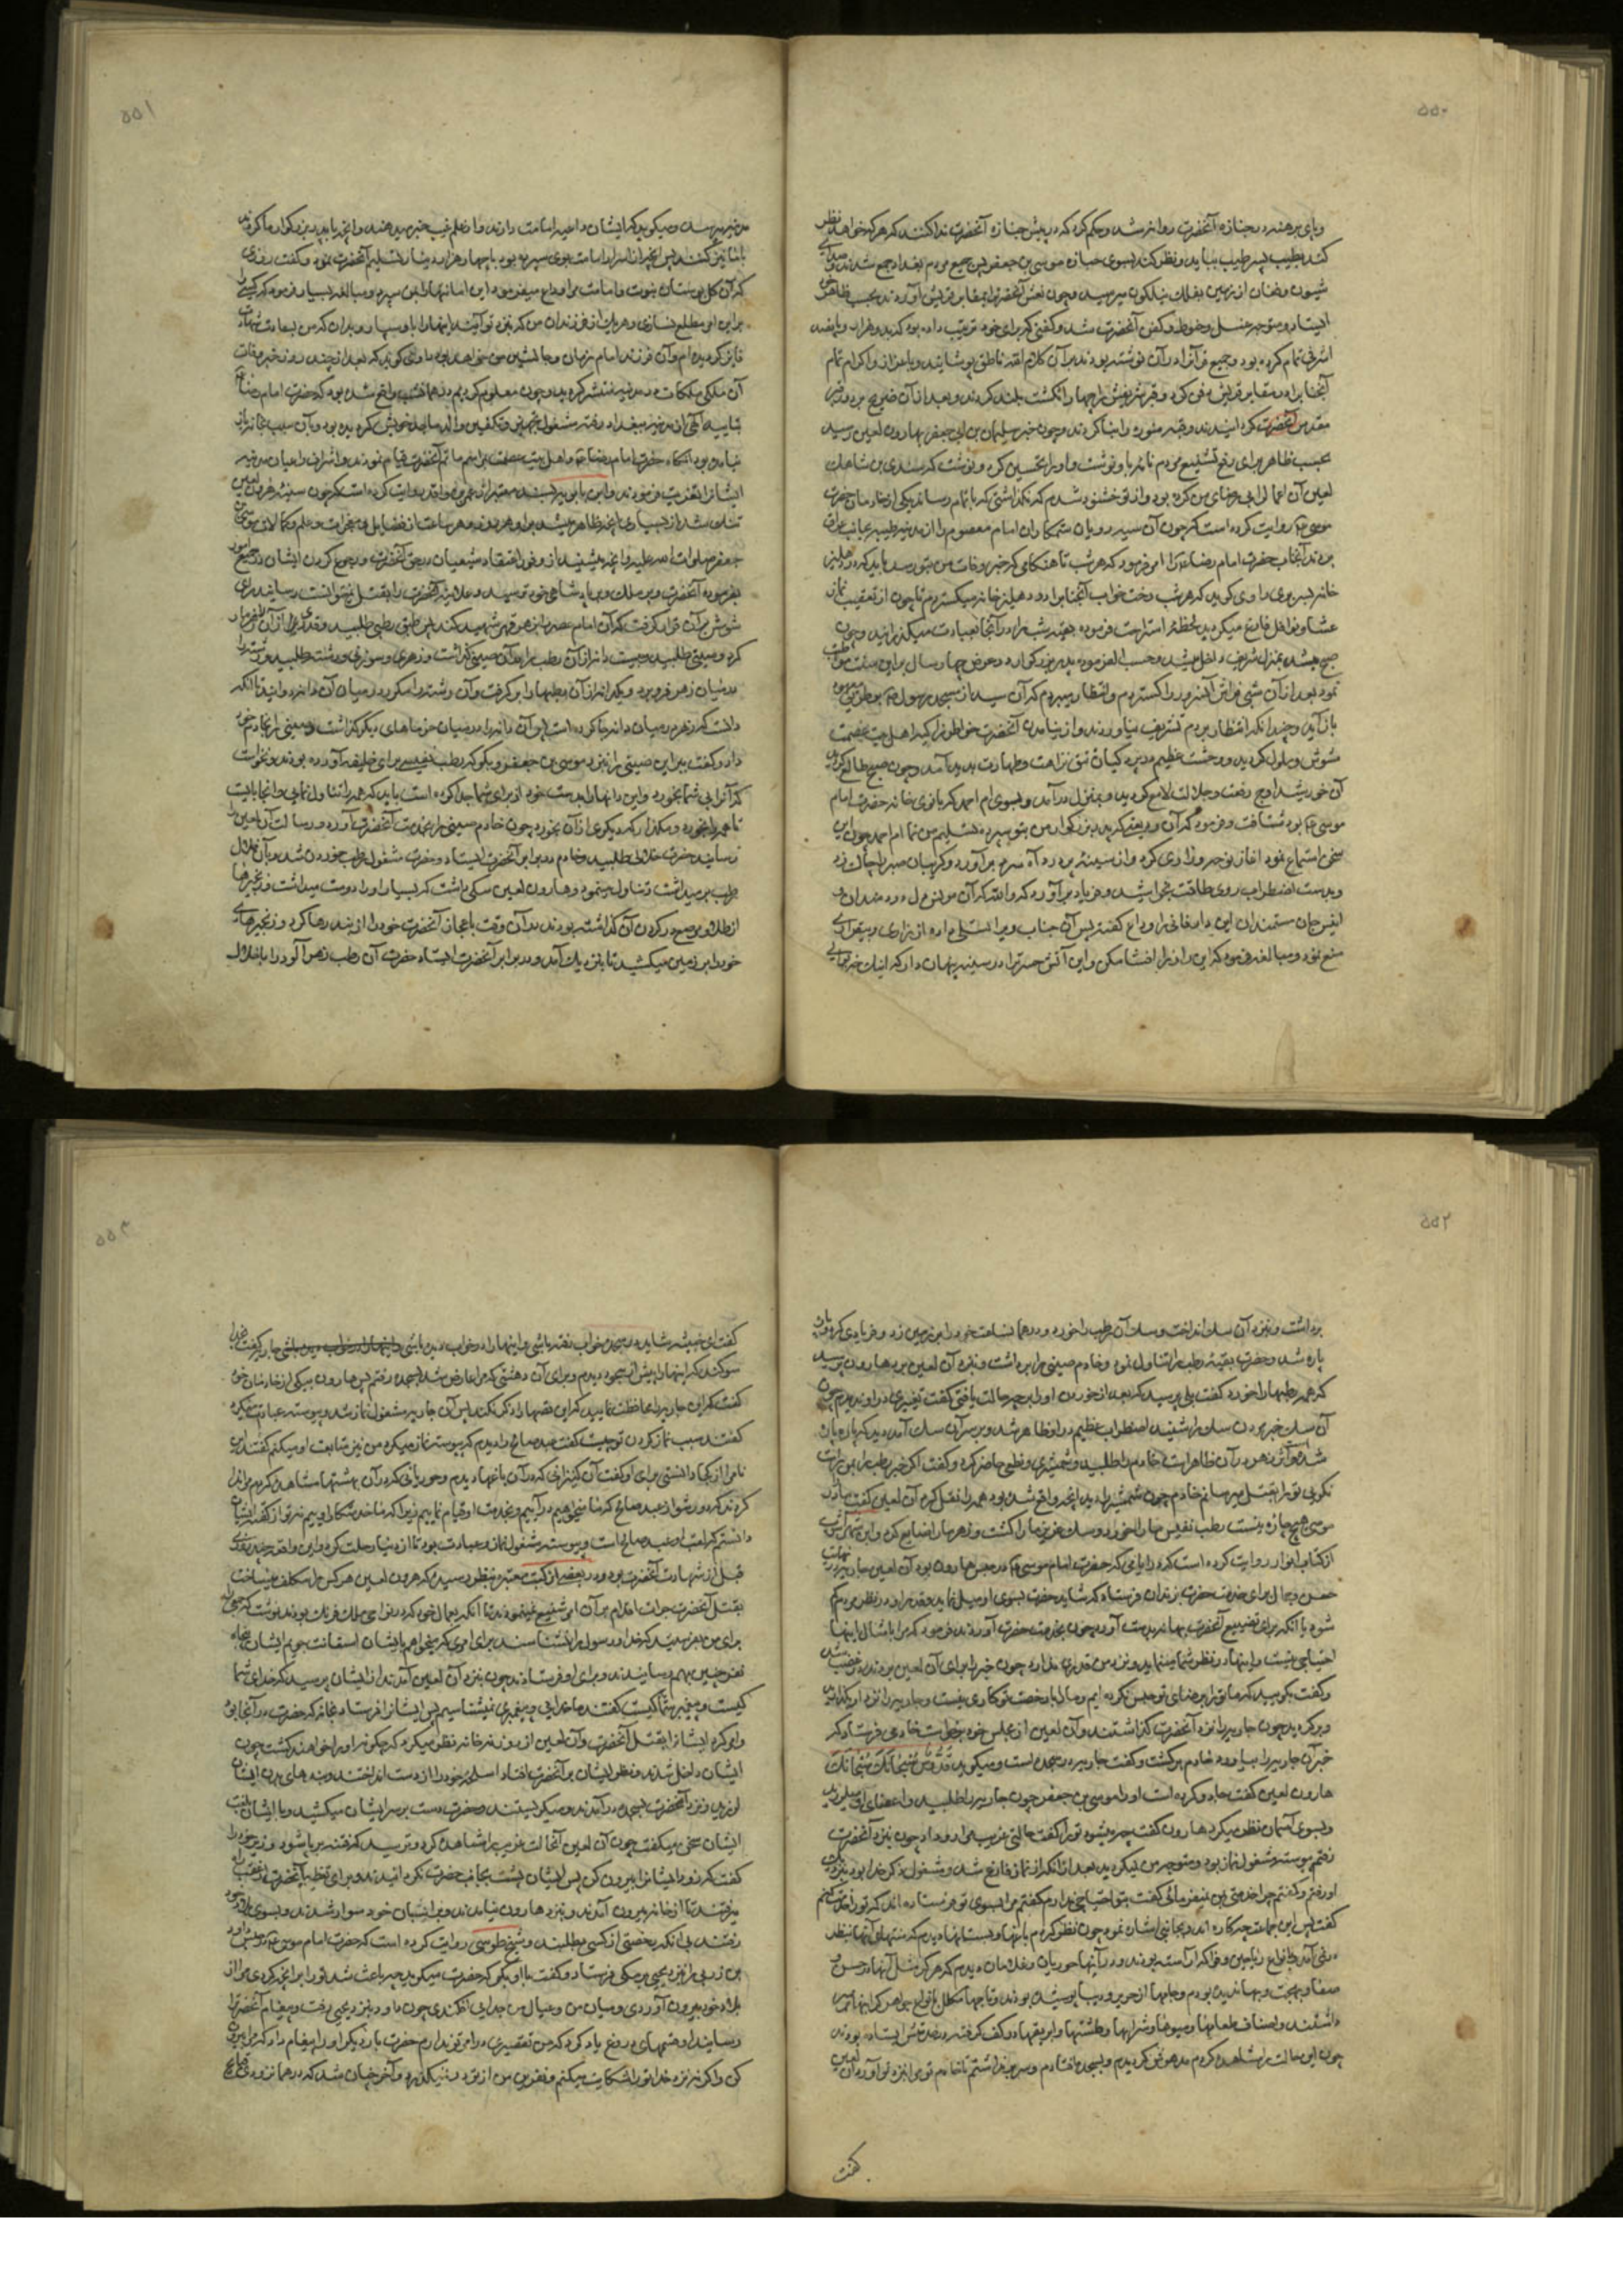 ۵۵۰
و پای برهنه در جنازه آنحضرت روانه شد و حکم کرد که در پیش جنازه آنحضرت ندا کنند که هر که خواهد نظر
کند بطیب پسر طیب بیاید و نظر کند بسوی جنازه موسی بن جعفر پس جمیع مردم بغداد جمع شدند و صدای
شیون و فغان از زمین بفلک نیلگون میرسید و چون نعش آنحضرت را بمقابر قریش آوردند بحسب ظاهر خود
ایستاد و متوجه غسل و حنوط و کفن آنحضرت شد و کفنی که برای خود ترتیب داده بود که بدو هزار و پانصد
اشرفی تمام کرده بود و جمیع قرآن را در آن نوشته بودند بر آن کلام الله ناطق پوشانیدند و باعزاز و اکرام تمام
آنجناب را در مقابر قریش دفن کرد و قبر شریفش را چهار انگشت بلند کردند و بعد از آن ضریح بر دور قبر
مقدس آنحضرت گردانیدند و قبه منوره را بنا کردند و چون خبر سلیمان بن ابی جعفر بهارون لعین رسید
بحسب ظاهر برای رفع تشنیع مردم نامه باو نوشت و او را تحسین کرد و نوشت که سندی بن شاهک
لعین آن اعمال را بی رضای من کرده بود و از تو خشنود شدم که نگذاشتی که باتمام رساند یکی از خادمان حضرت
موسی ع روایت کرده است که چون آن سیه رویان ستمکاران امام معصوم را از مدینه طیبه بجانب عراق
بردند آنجناب حضرت امام رضا ع را امر فرمود که هر شب تا هنگامی که خبر وفات من بتو رسد باید که در دهلیز
خانه بسر بری راوی گوید که هر شب رخت خواب آنجناب را در دهلیز خانه میگستردم تا چون از تعقیب نماز
عشا و نوافل فارغ میگردید لحظه استراحت فرموده بقیه شب را در آنجا بعبادت میگذرانید و چون
صبح میشد بمنزل شریف داخل میشد و حسب الفرموده پدر بزرگوار در عرض چهار سال براین سنت مواظبت
نمود بعد از آن شبی فراش آنسرور را گستردم و انتظار میبردم که آن سید از مسجد رسول ص بطریق معهود
باز آید و چندانکه انتظار بردم تشریف نیاوردند و از نیامدن آنحضرت خواطر زاکیه اهل بیت عصمت
مشوش و ملول گردید و وحشت عظیم در پردگیان تتق نزاهت و طهارت پدید آمد و چون صبح طالع گردید
آن خورشید اوج رفعت و جلالت لامع گردید و بمنزل درآمد و بسوی ام احمد که بانوی خانه حضرت امام
موسی ع بود شتافت و فرمود که آن ودیعه که پدر بزرگوار من بتو سپرده تسلیم من نما ام احمد چون این
سخن استماع نمود آغاز نوحه و زاری کرد و از سینه پر درد آه سرد برآورد و گریبان صبر را چاک زد
و بدست اضطراب روی طاقت بخراشید و فریاد برآورد که والله که آن مونس دل دردمندان و
انیس جان مستمندان این دار فانی را وداع گفته پس آن جناب ویرا تسلی داده از زاری و بیقراری
منع نمود و مبالغه فرمود که این راز را افشا مکن و این آتش حسرت را در سینه پنهان دار که اینک خبر بوالی
۵۵۱
مدینه میرسد و میگوید که ایشان داعیه امامت دارند و از علم غیب خبر میدهند و آنچه با پدر بزرگوار ما کردند
با ما نیز کنند پس آنچه از اسرار امامت بوی سپرده بود با چهار هزار دینار تسلیم آنحضرت نمود و گفت روزی
که آن گل بوستان نبوت و امامت مرا وداع میفرمود این امانتها را بمن سپرد و مبالغه بسیار فرمود که کسی را
براین امر مطلع نسازی و هر یک از فرزندان من که نزد تو آیند اینها را باو سپار و بدان که من بسعادت شهادت
فایز گردیده ام و آن فرزند امام زمان و جانشین من خواهد بود راوی گوید که بعد از چند روز خبر وفات
آن ملکی ملکات در مدینه منتشر گردید و چون معلوم کردیم در همان شب واقع شده بود که حضرت امام رضا ع
بتأیید الهی از مدینه ببغداد رفته مشغول تجهیز و تکفین والد ماجد خویش گردیده بود و بآن سبب بخانه باز
نیامده بود آنگاه حضرت امام رضا ع و اهل بیت عصمت بمراسم ماتم آنحضرت قیام نمودند و اشراف و اعیان مدینه
ایشانرا تعزیت فرمودند و ابن بابویه بسند معتبر از عمر بن واقد روایت کرده است که چون سینه هرون لعین
تنگ شد از بسیاری آنچه ظاهر میشد برای او هر روز و هر ساعت از فضایل و معجزات و علم و کمالات موسی بن
جعفر صلوات الله علیه و آنچه میشنید از وفور اعتقاد شیعیان در حق آنحضرت و رجوع کردن ایشان در جمیع امور
بفرموده آنحضرت و بر ملک و پادشاهی خود ترسید و علانیه آنحضرت را بقتل نمیتوانست رسانید رای
شومش بر آن قرار گرفت که آن امام عصر را بزهر قهر شهید کند پس طبق رطبی طلبید و قدری از آن زهر مار
کرد و سینی طلبید و بیست دانه از آن رطب را در آن سینی گذاشت و زهری و سوزنی و رشته طلبید و رشته را
در میان زهر فرو برد و یکدانه از آن رطبها را برگرفت و آن رشته را مکرر در میان آن دانه دوانید تا آنکه
دانست که زهر در میان دانه جا کرده است پس آن دانه را در میان خرماهای دیگر گذاشت و سینی را بخادم خود
داد و گفت ببر این سینی را نزد موسی بن جعفر و بگو که رطب نفیسی برای خلیفه آورده بودند و نخواست
که آنرا بی شما بخورد و این دانها را بدست خود از برای شما جدا کرده است باید که همه را تناول نمایی و آنجا بایست
تا همه را بخورد و مگذار که دیگری از آن بخورد چون خادم سینی را بخدمت آنحضرت آورد و رسالت آن لعین را
رسانید حضرت خلالی طلبید و خادم در برابر آنحضرت ایستاد و حضرت مشغول رطب خوردن شد و بآن خلال
رطب برمیداشت و تناول مینمود و هارون لعین سگی داشت که بسیار او را دوست میداشت و زنجیرها
از طلا و مرصع در گردن آن گذاشته بودند در آن وقت باعجاز آنحضرت خود را از بند رها کرد و زنجیرهای
خود را بر زمین میکشید تا بنزدیک آمد و در برابر آنحضرت ایستاد حضرت آن رطب زهر آلود را با خلال
۵۵۲
برداشت و بنزد آن سگ انداخت و سگ آن رطب را خورد و در همان ساعت خود را بر زمین زد و فریادی کرد و پاره
پاره شد و حضرت بقیه رطب را تناول نمود و خادم سینی را برداشت و نزد آن لعین برد هارون پرسید
که همه رطبها را خورد گفت بلی پرسید که بعد از خوردن او را بر چه حالت یافتی گفت تغییری در او ندیدم چون
آن سگ خبر مردن سگ را شنید اضطراب عظیم در او ظاهر شد و بر سر آن سگ آمد دید که پاره پاره
شده و آثر زهر در آن ظاهر است خادم را طلبید و شمشیری و نطعی حاضر کرد و گفت اگر خبر رطب را بمن راست
نگویی تو را بقتل میرسانم خادم چون شمشیر را دید آنچه واقع شده بود همه را نقل کرد آن لعین گفت ما را در
موسی هیچ چاره نیست رطب نفیس ما را خورد و سگ عزیز ما را کشت و زهر ما را ضایع کرد و ابن شهر آشوب
از کتاب انوار روایت کرده است که در ایامی که حضرت امام موسی ع در حبس هارون بود آن لعین جاریه در نهایت
حسن و جمال برای خدمت حضرت بزندان فرستاد که شاید حضرت بسوی او میل نماید و قدر او در نظر مردم کم
شود یا آنکه برای تضییع آنحضرت بهانه بدست آورد چون بخدمت حضرت آوردند فرمود که مرا بامثال اینها
احتیاجی نیست و اینها در نظر شما مینماید و نزد من قدری ندارد چون خبر را برای آن لعین بردند در غضب شد
و گفت بگویید که ما تو را برضای تو حبس نکرده ایم و ما را با رخصت تو کاری نیست و جاریه را نزد او بگذارید
و برگردید چون جاریه را نزد آنحضرت گذاشتند و آن لعین از مجلس خود برخواست خادمی فرستاد که
خبر آن جاریه را بیاورد خادم برگشت و گفت جاریه در سجده است و میگوید قُدُّوسٌ سُبْحَانَکَ سُبْحَانَکَ
هارون لعین گفت جادو کرده است او را موسی بن جعفر چون جاریه را طلبید و اعضای او میلرزید
و بسوی آسمان نظر میکرد هارون گفت چه میشود تو را گفت حالتی غریب مرا رو داد چون نزد آنحضرت
رفتم پیوسته مشغول نماز بود و متوجه من نمیگردید بعد از آنکه از نماز فارغ شد و مشغول ذکر خدا بود نزدیک
او رفتم و گفتم چرا خدمتی بمن نمیفرمائی گفت بتو احتیاجی ندارم گفتم مرا بسوی تو فرستاده اند که تو را خدمت کنم
گفت پس این جماعت چکاره اند و بجانبی اشاره نمود چون نظر کردم باغها و بستانها دیدم که منتهای آنها بنظر
در نمی آمد بانواع ریاحین و فواکه آراسته بودند و در آنها حوریان و غلامان دیدم که هرگز مثل آنها در حسن و
صفا و بهجت و بها ندیده بودم و جامها از حریر و دیبا پوشیده بودند و تاجها مکلل بانواع جواهر گرانبها بر سر
داشتند و اصناف طعامها و میوها و شرابها و طشتها و ابریقها در کف گرفته در خدمتش ایستاده بودند
چون این حالت را مشاهده کردم مدهوش گردیدم و بسجده افتادم و سر برنداشتم تا خادم تو مرا بنزد تو آورد آن لعین
گفت
۵۵۳
گفت ای خبیثه شاید در سجده بخواب رفته باشی و اینها را در خواب دیده باشی جاریه گفت بخدا
سوگند که اینها را پیش از سجود دیدم و برای آن دهشتی که مرا عارض شد بسجده رفتم پس هارون بیکی از خادمان خود
گفت که این جاریه را محافظت نمایید که این قصها را ذکر نکند پس آن جاریه مشغول نماز شد و پیوسته عبادت میکرد
گفتند سبب نماز کردن تو چیست گفت عبد صالح را دیدم که پیوسته نماز میکرد من نیز متابعت او میکنم گفتند این
نام را از کجا دانستی برای او گفت آن کنیزانی که در آن باغها دیدم و حوریانی که در آن بهشتها مشاهده کردم مرا ندا
کردند که دور شو از عبد صالح که ما میخواهیم درآییم و بخدمت او قیام نماییم زیرا که ما خدمتکار اوییم نه تو از گفته ایشان
دانستم که لقب او عبد صالح است و پیوسته مشغول نماز و عبادت بود تا از دنیا رحلت کرد و این واقعه چند روزی
قبل از شهادت آنحضرت بود و در بعضی از کتب معتبره بنظر رسیده که هرون لعین هر کس را مکلف میساخت
بقتل آنحضرت جرات اقدام بر آن امر شنیع نمینمودند تا آنکه بعمال خود که در نواحی ملک فرنگ بودند نوشت که جمعی را
برای من بفرستید که خدا و رسول را نشناسند برای امری که میخواهم بایشان استعانت جویم ایشان پنجاه
نفر چنین بهم رسانیدند و برای او فرستادند چون بنزد آن لعین آمدند از ایشان پرسید که خدای شما
کیست و پیغمبر شما کیست گفتند ما خدایی و پیغمبری نمیشناسیم پس ایشانرا فرستاد بخانه که حضرت در آنجا بود
و امر کرد ایشانرا بقتل آنحضرت و آن لعین از روزنه خانه نظر میکرد که چگونه او را خواهند کشت چون
ایشان داخل شدند و نظر ایشان بر آنحضرت افتاد اسلحه خود را از دست انداختند و بندهای بدن ایشان
لرزید و نزد آنحضرت بسجده درآمدند و میگریستند و حضرت دست بر سر ایشان میکشید و با ایشان بلغت
ایشان سخن میگفت چون آن لعین آنحالت غریب را مشاهده کرد و ترسید که فتنه برپا شود وزیر خود را
گفت که زود ایشانرا بیرون کن پس ایشان پشت بجانب حضرت نکردانیدند و برای تعظیم آنحضرت از عقب راه
میرفتند تا از خانه بیرون آمدند و بنزد هارون نیامدند و بر اسبان خود سوار شدند و بسوی بلاد خود
رفتند بی آنکه رخصتی از کسی بطلبند و شیخ طوسی روایت کرده است که حضرت امام موسی ع داود
بن زربی را نزد یحیی برمکی فرستاد و گفت با او بگو که حضرت میگوید چه باعث شد تو را بر آنچه کردی مرا از
بلاد خود بیرون آوردی و میان من و عیال من جدایی افکندی چون داود بنزد یحیی رفت و پیغام آنحضرت را
رسانید او قسمهای دروغ یاد کرد که من تقصیری در امر تو ندارم حضرت بار دیگر او را پیغام داد که مرا بیرون
کن و اگر نه نزد خدا تو را شکایت میکنم و نفرین من از تو در نمیگذرد و آخر چنان شد که در همان زودی